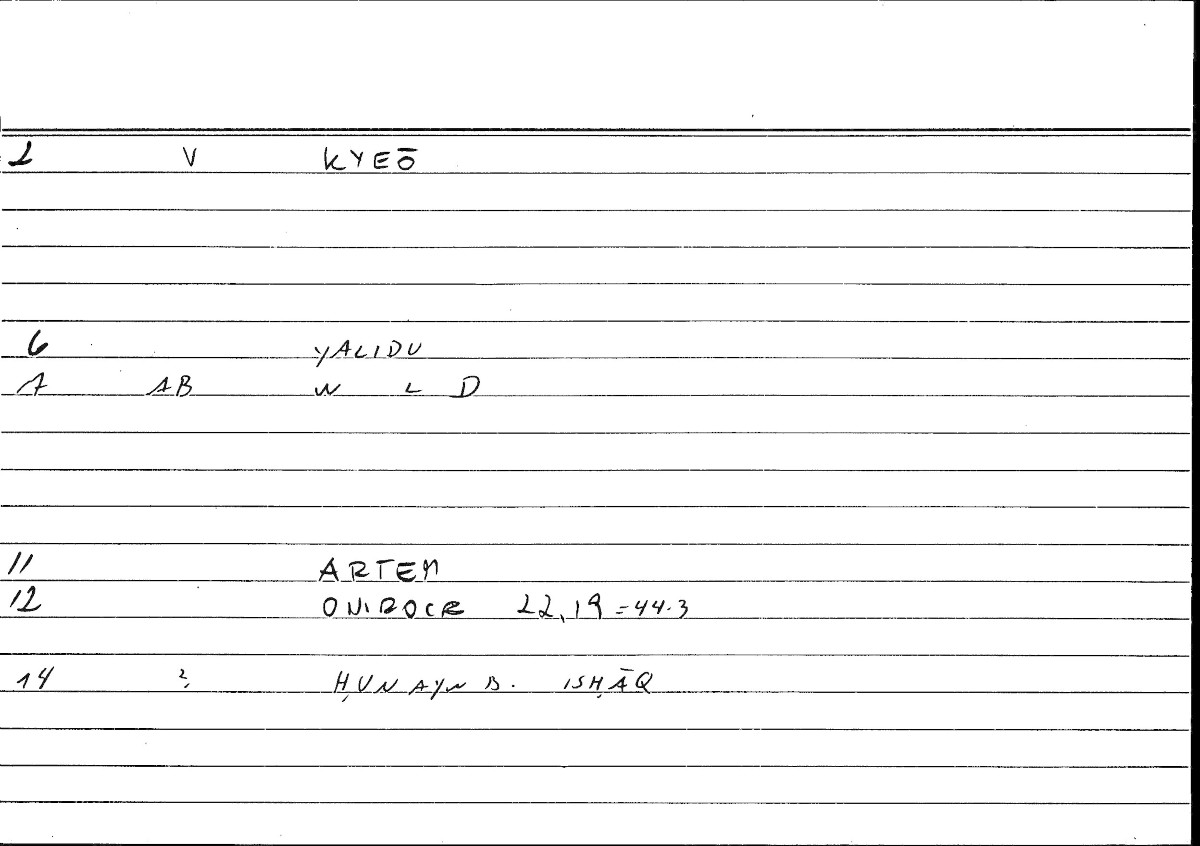 1 V KYEŌ
6 YALIDU
7 AB W L D
11 ARTEM
12 ONIROCR 22,19 = 44.3
14 ? ḤUNAYN B. ISḤĀQ